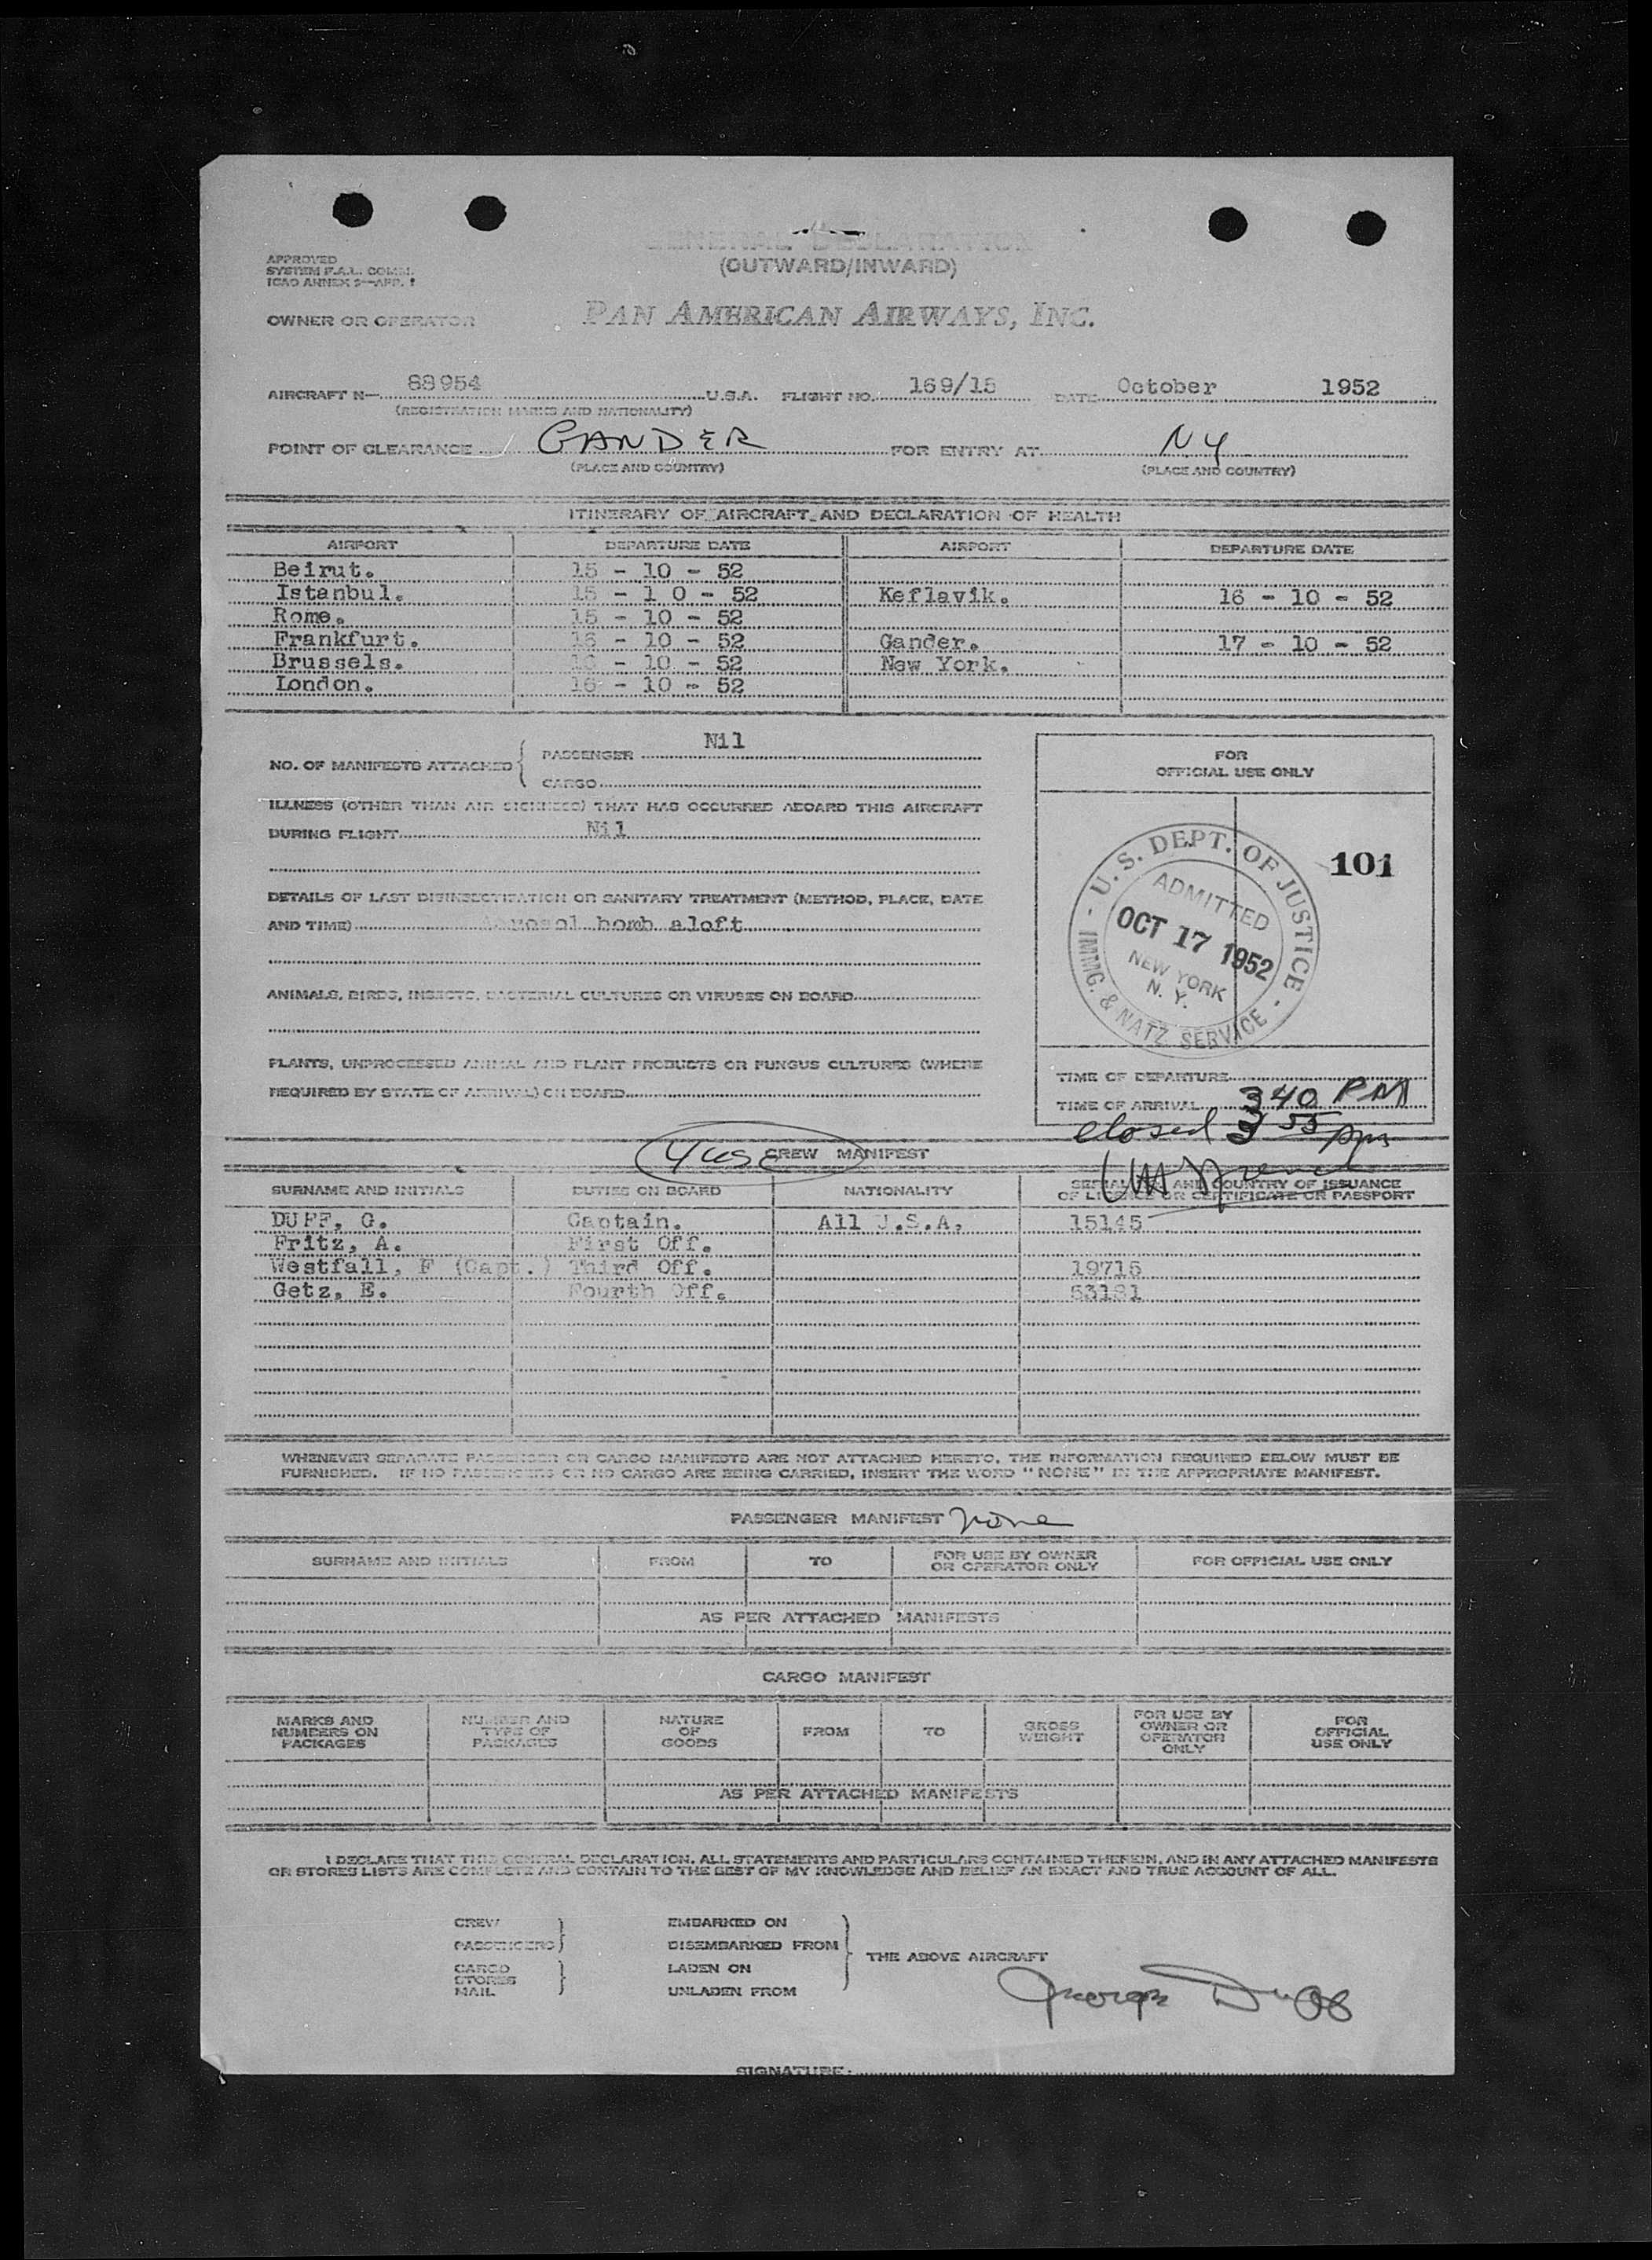 GENERAL DECLARATION
(OUTWARD/INWARD)
APPROVED
SYSTEM F.A.L. COMM.
ICAO ANNEX 9—APP. 1
OWNER OR OPERATOR PAN AMERICAN AIRWAYS, INC.
AIRCRAFT N— 88954 U.S.A. FLIGHT NO. 169/15 DATE October 1952
(REGISTRATION MARKS AND NATIONALITY)
POINT OF CLEARANCE GANDER FOR ENTRY AT NY
(PLACE AND COUNTRY) (PLACE AND COUNTRY)
ITINERARY OF AIRCRAFT AND DECLARATION OF HEALTH
AIRPORT DEPARTURE DATE AIRPORT DEPARTURE DATE
Beirut. 15 - 10 - 52
Istanbul. 15 - 1 0 - 52 Keflavik. 16 - 10 - 52
Rome. 15 - 10 - 52
Frankfurt. 16 - 10 - 52 Gander. 17 - 10 - 52
Brussels. 16 - 10 - 52 New York.
London. 16 - 10 - 52
NO. OF MANIFESTS ATTACHED PASSENGER Nil
CARGO
ILLNESS (OTHER THAN AIR SICKNESS) THAT HAS OCCURRED ABOARD THIS AIRCRAFT
DURING FLIGHT Nil
DETAILS OF LAST DISINSECTIZATION OR SANITARY TREATMENT (METHOD, PLACE, DATE
AND TIME) Aerosol bomb aloft
ANIMALS, BIRDS, INSECTS, BACTERIAL CULTURES OR VIRUSES ON BOARD
PLANTS, UNPROCESSED ANIMAL AND PLANT PRODUCTS OR FUNGUS CULTURES (WHERE
REQUIRED BY STATE OF ARRIVAL) ON BOARD
FOR
OFFICIAL USE ONLY
101
U.S. DEPT. OF JUSTICE
ADMITTED
OCT 17 1952
NEW YORK
N. Y.
IMMG. & NATZ SERVICE
TIME OF DEPARTURE
TIME OF ARRIVAL 340 PM
closed 3 55 pm
4 usc CREW MANIFEST
SURNAME AND INITIALS DUTIES ON BOARD NATIONALITY SERIAL AND COUNTRY OF ISSUANCE
OF LICENCE OR CERTIFICATE OR PASSPORT
DUFF, G. Captain. All U.S.A. 15145
Fritz, A. First Off.
Westfall, F (Capt.) Third Off. 19715
Getz, E. Fourth Off. 53181
WHENEVER SEPARATE PASSENGER OR CARGO MANIFESTS ARE NOT ATTACHED HERETO, THE INFORMATION REQUIRED BELOW MUST BE
FURNISHED. IF NO PASSENGERS OR NO CARGO ARE BEING CARRIED, INSERT THE WORD "NONE" IN THE APPROPRIATE MANIFEST.
PASSENGER MANIFEST none
SURNAME AND INITIALS FROM TO FOR USE BY OWNER
OR OPERATOR ONLY FOR OFFICIAL USE ONLY
AS PER ATTACHED MANIFESTS
CARGO MANIFEST
MARKS AND
NUMBERS ON
PACKAGES
NUMBER AND
TYPE OF
PACKAGES
NATURE
OF
GOODS
FROM
TO
GROSS
WEIGHT
FOR USE BY
OWNER OR
OPERATOR
ONLY
FOR
OFFICIAL
USE ONLY
AS PER ATTACHED MANIFESTS
I DECLARE THAT THIS GENERAL DECLARATION, ALL STATEMENTS AND PARTICULARS CONTAINED THEREIN, AND IN ANY ATTACHED MANIFESTS
OR STORES LISTS ARE COMPLETE AND CONTAIN TO THE BEST OF MY KNOWLEDGE AND BELIEF AN EXACT AND TRUE ACCOUNT OF ALL.
CREW EMBARKED ON
PASSENGERS DISEMBARKED FROM
THE ABOVE AIRCRAFT
CARGO LADEN ON
STORES
MAIL UNLADEN FROM
George Duff
SIGNATURE: